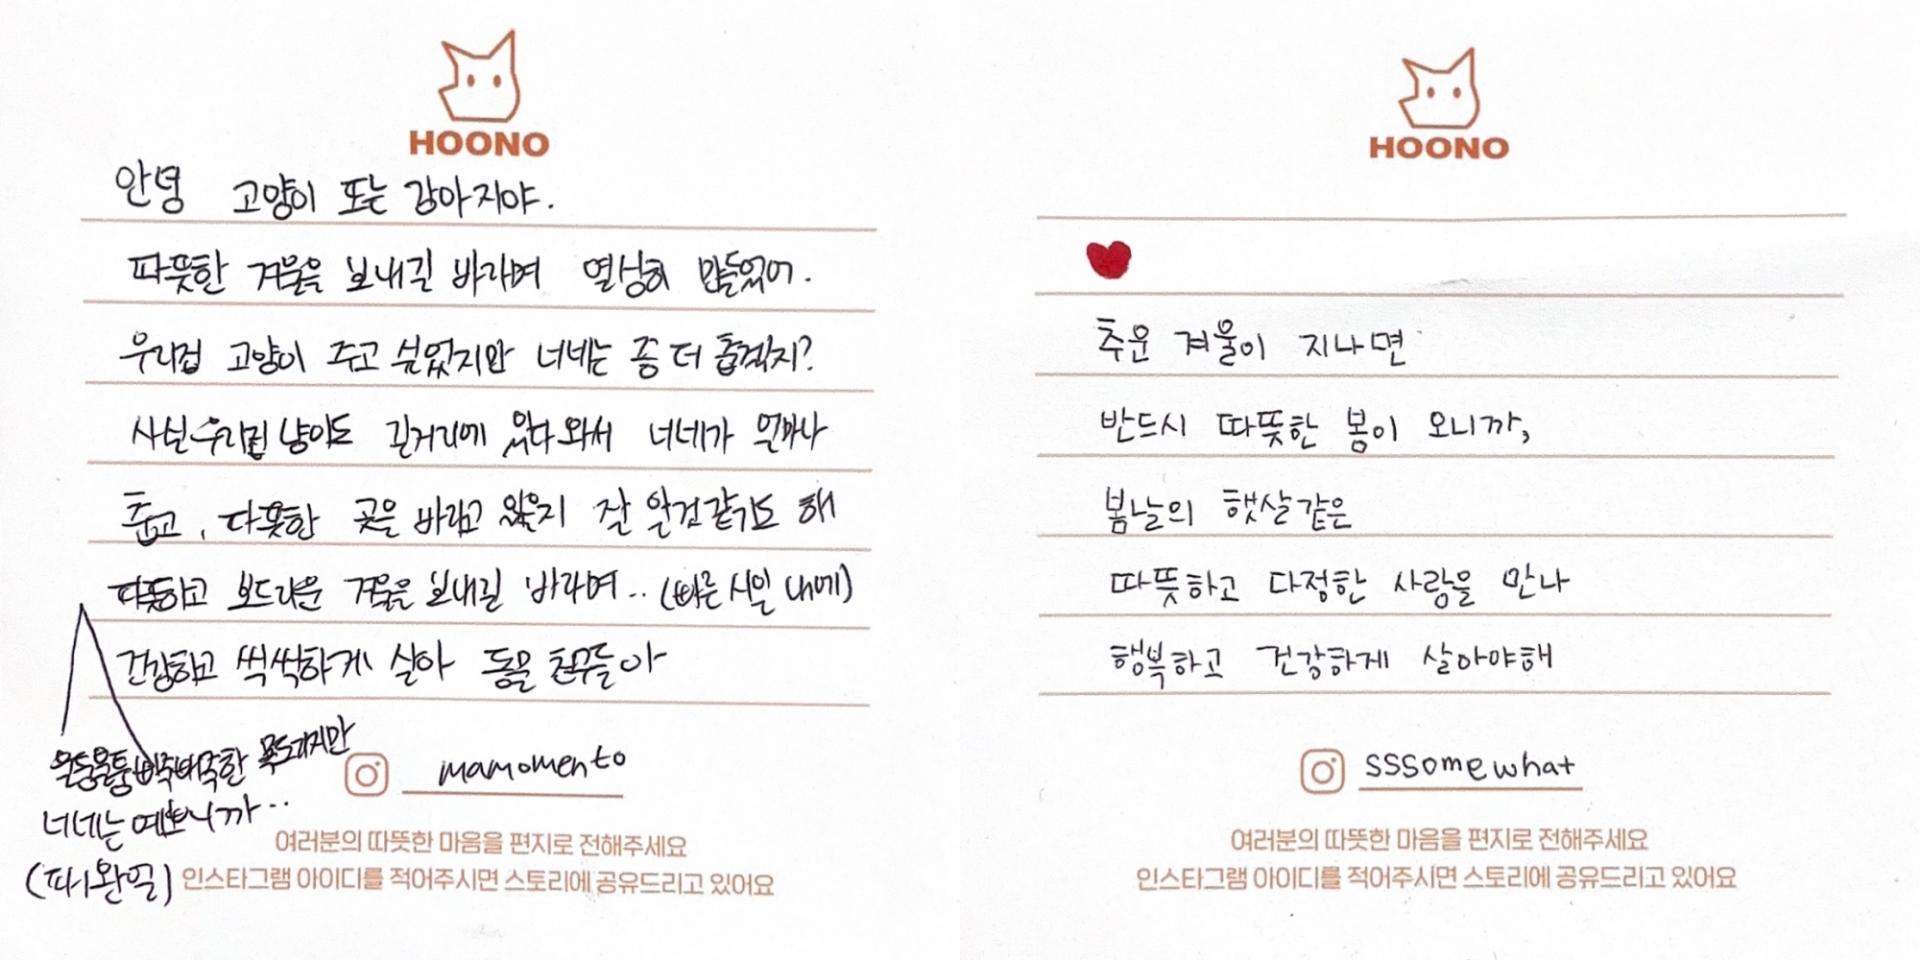 HOONO
안녕 고양이 또는 강아지야.
따뜻한 겨울을 보내길 바라며 열심히 만들었어.
우리집 고양이 주고 싶었지만 너네는 좀 더 춥겠지?
사실 우리집 냥이도 길거리에 있다 와서 너네가 얼마나
춥고, 따뜻한 곳을 바라고 있을지 잘 알것같기도 해
따뜻하고 보드라운 겨울을 보내길 바라며.. (빠른 시일 내에)
건강하고 씩씩하게 살아 동물 친구들아
울퉁불퉁 삐뚤빼뚤한 목도리지만
너네는 예쁘니까..
(패완얼)
mamomento
여러분의 따뜻한 마음을 편지로 전해주세요
인스타그램 아이디를 적어주시면 스토리에 공유드리고 있어요
HOONO
추운 겨울이 지나면
반드시 따뜻한 봄이 오니까,
봄날의 햇살같은
따뜻하고 다정한 사랑을 만나
행복하고 건강하게 살아야해
sssomewhat
여러분의 따뜻한 마음을 편지로 전해주세요
인스타그램 아이디를 적어주시면 스토리에 공유드리고 있어요